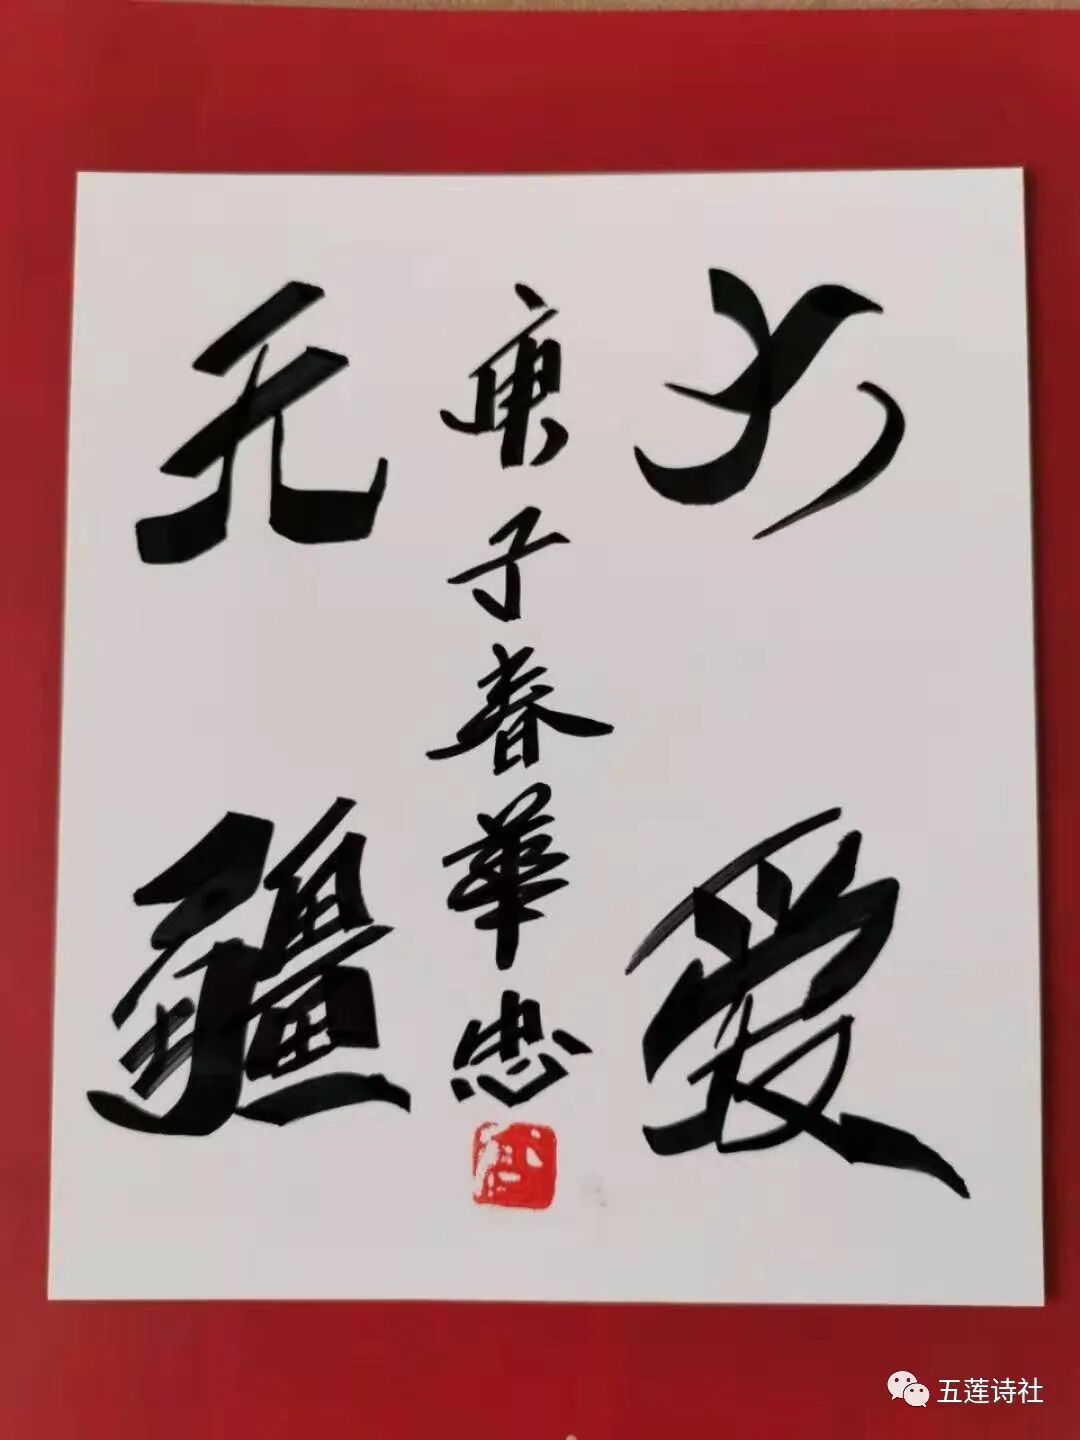 大爱
无疆
庚子春華忠
五莲诗社